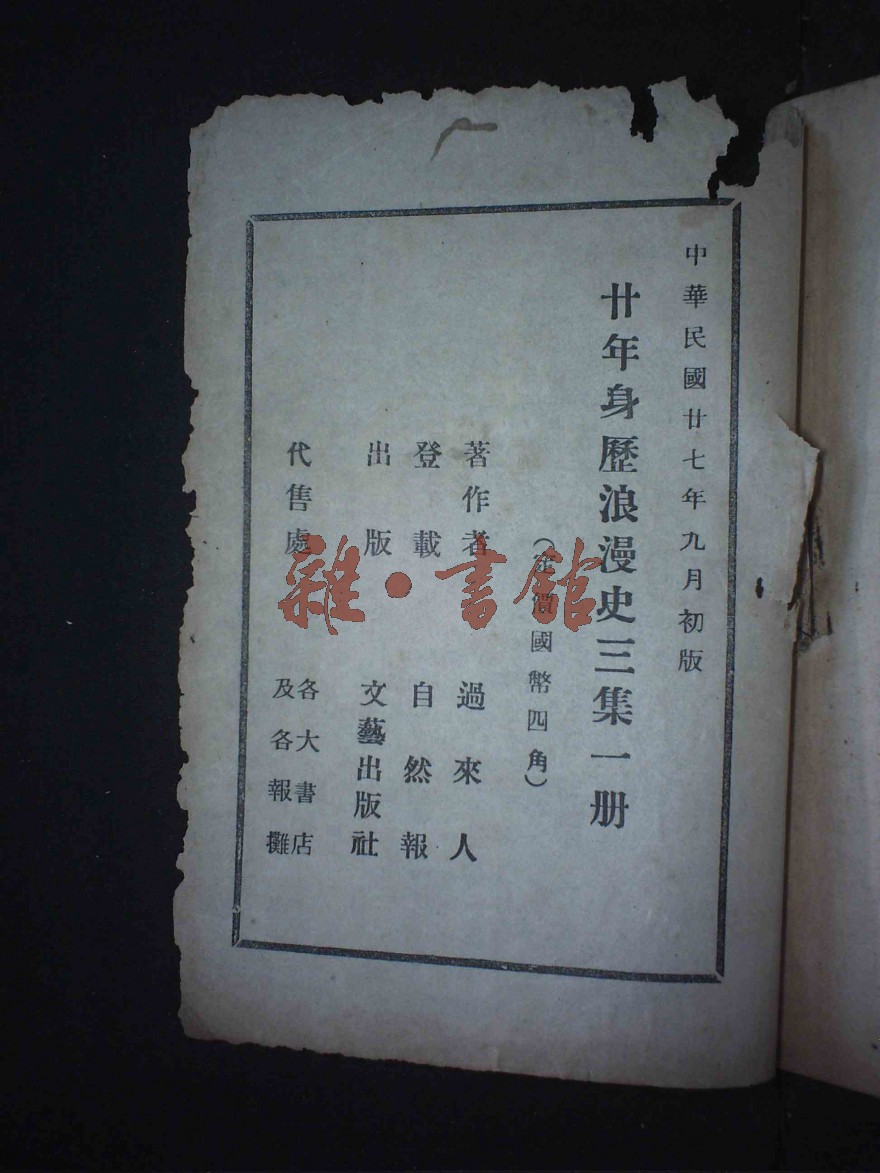 中華民國廿七年九月初版
廿年身歷浪漫史三集一册
（定價國幣四角）
著作者 過來人
登載 自然報
出版 文藝出版社
代售處 各大書店
及各報攤
雜·書館